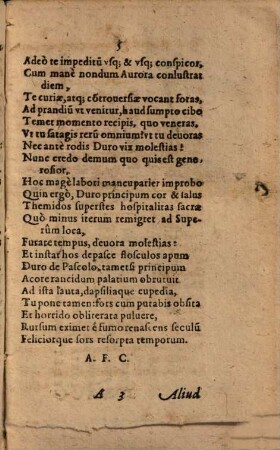 5
Adeò te impeditũ vſq; & vſq; conſpicor,
Cum manè nondum Aurora conluſtrat
diem,
Te curiæ, atq; cõtrouerſiæ vocant foras,
Ad prandiũ vt venitur, haud ſumpto cibo
Temet momento recipis, quo veneras.
Vt tu ſatagis rerũ omnium! vt tu deuoras
Nec antè rodis Duro vix moleſtias!
Nunc credo demum quo quis eſt gene-
roſior,
Hoc magè labori mancuparier improbo
Quin ergò, Duro principum cor & ſalus
Themidos ſuperſtes hoſpitalitas ſacræ
Quò minus iterum remigret ad Supe-
rûm loca,
Furare tempus, deuora moleſtias:
Et inſtar hos depaſce floſculos apum
Duro de Paſcolo, tametſi principum
Acore rancidum palatium obrutuit
Ad iſta lauta, dapſiliaque cupedia,
Tu pone tamen: fors cum putabis obſita
Et horrido oblitterata puluere,
Rurſum eximet è fumo renaſcens ſeculũ
Feliciorque ſors reſorpta temporum.
A. F. C.
A 3 Aliud